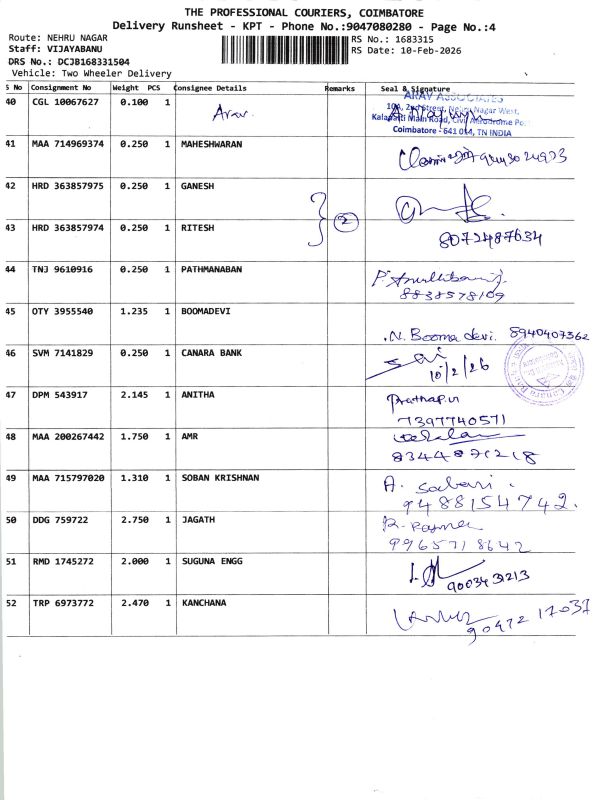 THE PROFESSIONAL COURIERS, COIMBATORE
Delivery Runsheet - KPT - Phone No.:9047080280 - Page No.:4
Route: NEHRU NAGAR
Staff: VIJAYABANU
DRS No.: DCJB168331504
Vehicle: Two Wheeler Delivery
RS No.: 1683315
RS Date: 10-Feb-2026
S No Consignment No Weight PCS Consignee Details Remarks Seal & Signature
40 CGL 10067627 0.100 1 Arav
ARAV ASSOCIATES
10A, 2nd Street, Nehru Nagar West,
Kalapatti Main Road, Civil Aerodrome Po
Coimbatore - 641 014, TN INDIA
41 MAA 714969374 0.250 1 MAHESHWARAN
42 HRD 363857975 0.250 1 GANESH
2
43 HRD 363857974 0.250 1 RITESH
8072487634
44 TNJ 9610916 0.250 1 PATHMANABAN
8838578109
45 OTY 3955540 1.235 1 BOOMADEVI
.N. Booma devi. 8940407362
46 SVM 7141829 0.250 1 CANARA BANK
10/2/26
47 DPM 543917 2.145 1 ANITHA
Prathap.n
7397740571
48 MAA 200267442 1.750 1 AMR
8344871218
49 MAA 715797020 1.310 1 SOBAN KRISHNAN
A. Sabari.
9488154742.
50 DDG 759722 2.750 1 JAGATH
9965718642
51 RMD 1745272 2.000 1 SUGUNA ENGG
52 TRP 6973772 2.470 1 KANCHANA
90472 17037